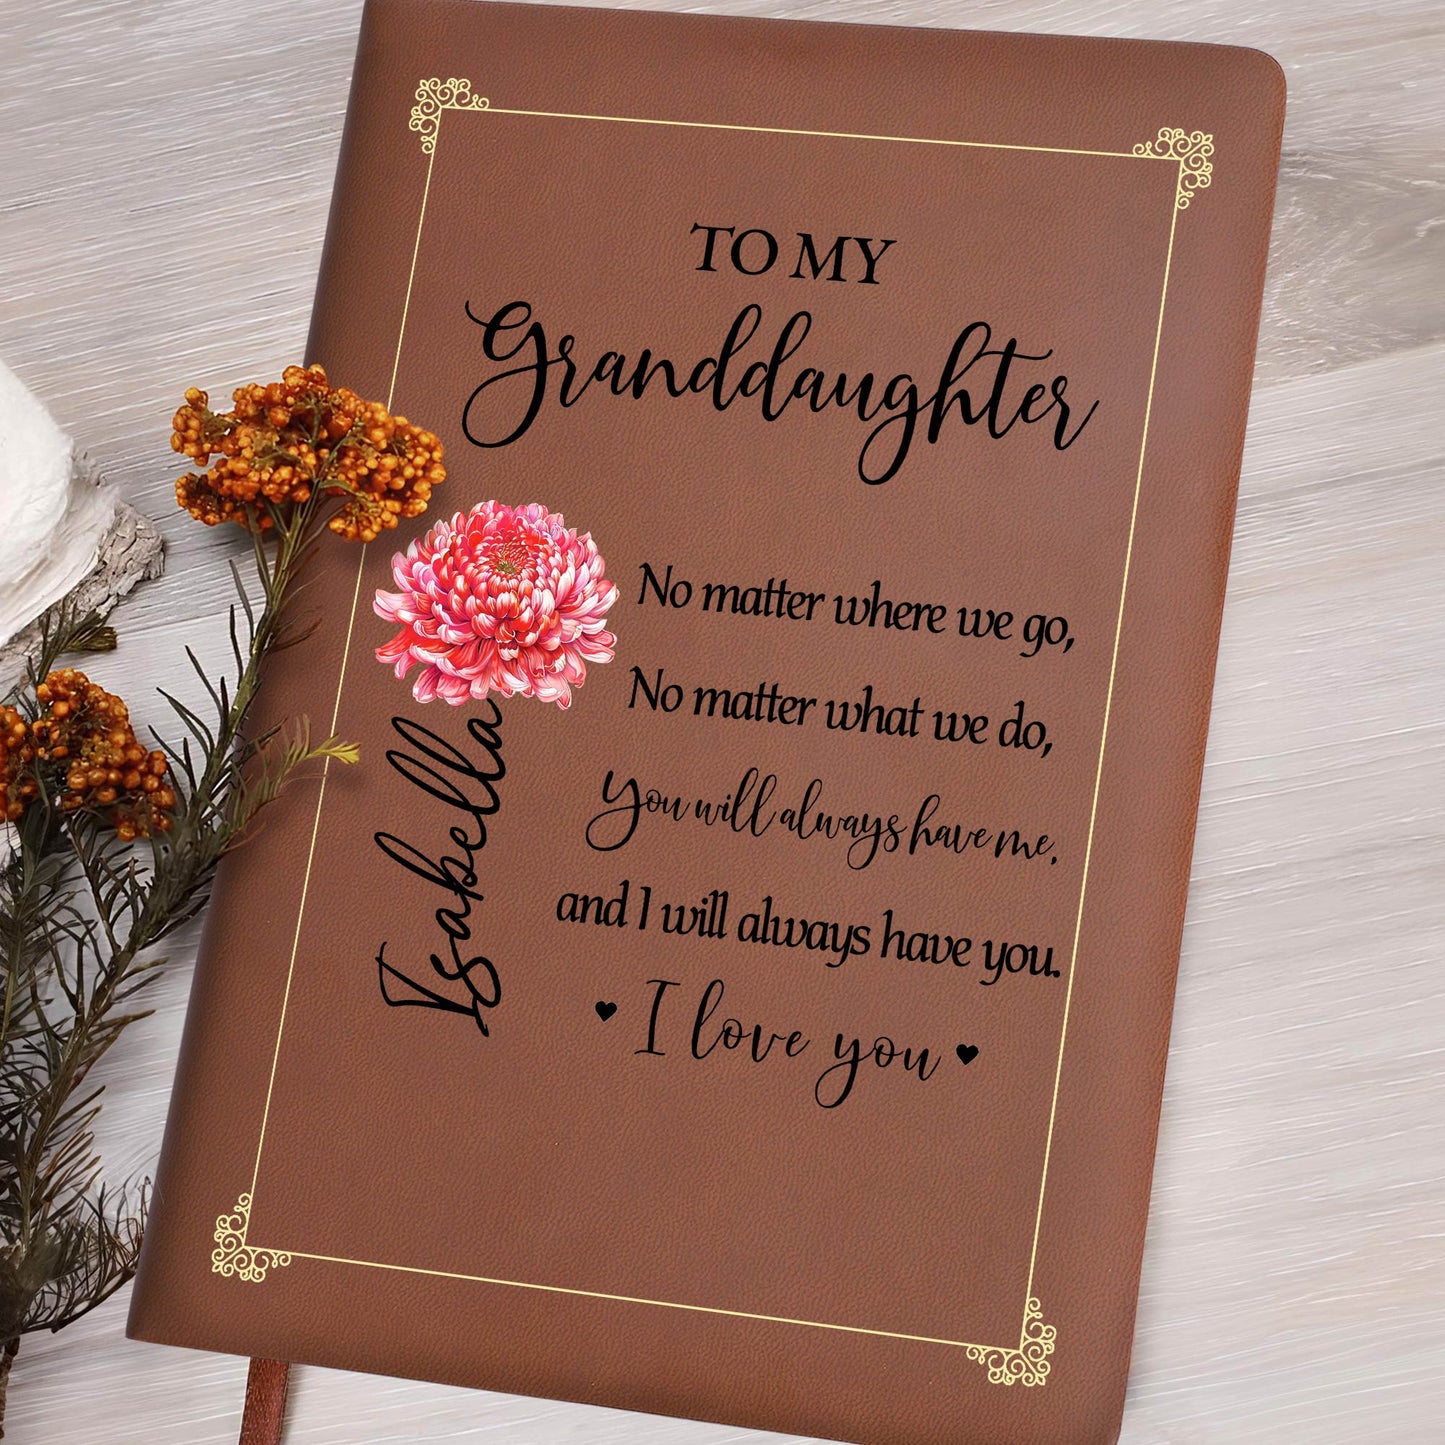 TO MY
Granddaughter
No matter where we go,
No matter what we do,
You will always have me,
and I will always have you.
I love you
Isabella